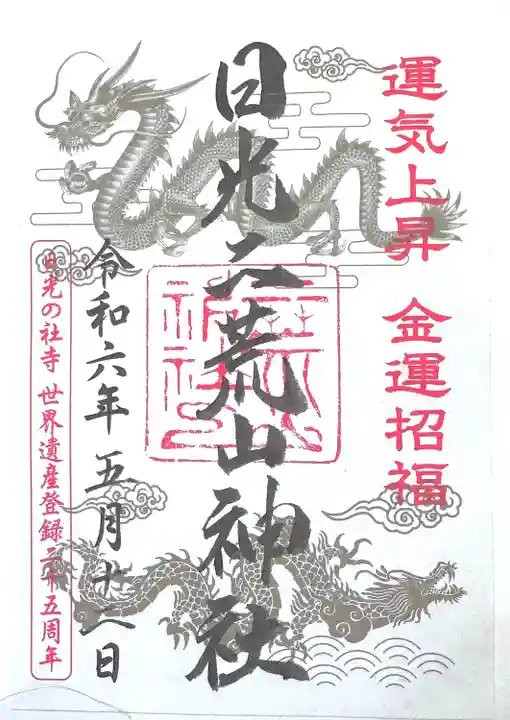 運気上昇 金運招福
日光二荒山神社
令和六年 五月十二日
日光の社寺 世界遺産登録二十五周年